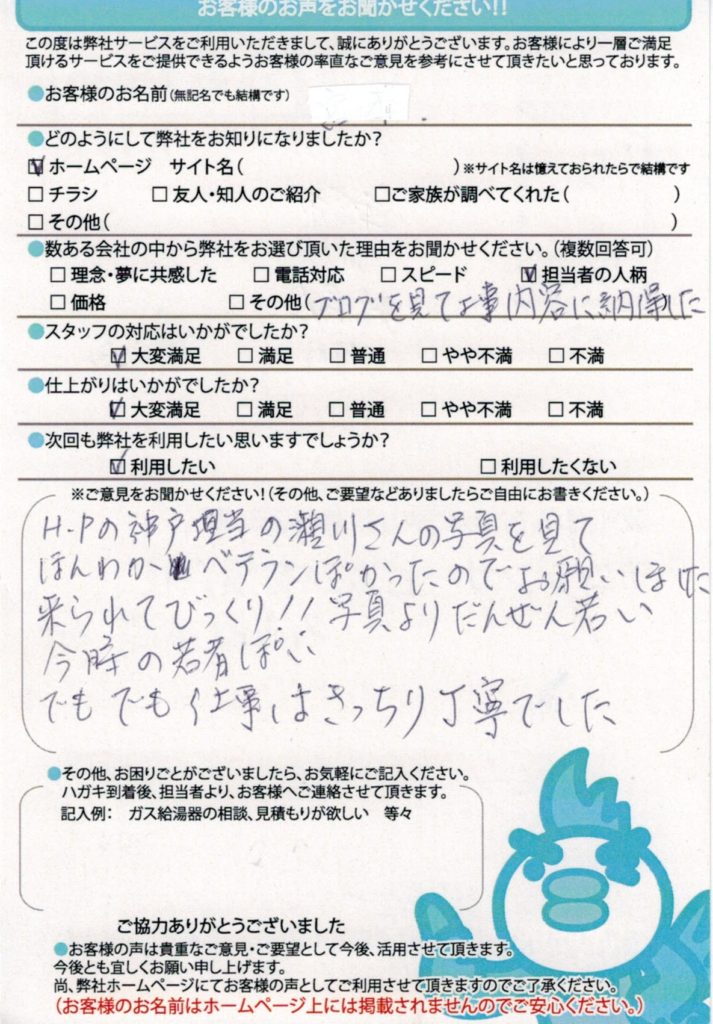 お客様のお声をお聞かせください!!
この度は弊社サービスをご利用いただきまして、誠にありがとうございます。お客様により一層ご満足
頂けるサービスをご提供できるようお客様の率直なご意見を参考にさせて頂きたいと思っております。
●お客様のお名前(無記名でも結構です)
●どのようにして弊社をお知りになりましたか?
☑ホームページ サイト名( )※サイト名は憶えておられたらで結構です
□チラシ □友人・知人のご紹介 □ご家族が調べてくれた( )
□その他( )
●数ある会社の中から弊社をお選び頂いた理由をお聞かせください。(複数回答可)
□理念・夢に共感した □電話対応 □スピード ☑担当者の人柄
□価格 □その他(ブログを見て工事内容に納得した
●スタッフの対応はいかがでしたか?
☑大変満足 □満足 □普通 □やや不満 □不満
●仕上がりはいかがでしたか?
☑大変満足 □満足 □普通 □やや不満 □不満
●次回も弊社を利用したい思いますでしょうか?
☑利用したい □利用したくない
※ご意見をお聞かせください!(その他、ご要望などありましたらご自由にお書きください。)
H-Pの神戸担当の瀬川さんの写真を見て
ほんわか ベテランぽかったのでお願いしました
来られてびっくり!!写真よりだんぜん若い
今時の若者ぽい
でもでも仕事はきっちり丁寧でした
●その他、お困りごとがございましたら、お気軽にご記入ください。
ハガキ到着後、担当者より、お客様へご連絡させて頂きます。
記入例: ガス給湯器の相談、見積もりが欲しい 等々
ご協力ありがとうございました
●お客様の声は貴重なご意見・ご要望として今後、活用させて頂きます。
今後とも宜しくお願い申し上げます。
尚、弊社ホームページにてお客様の声としてご利用させて頂きますのでご了承ください。
(お客様のお名前はホームページ上には掲載されませんのでご安心ください。)